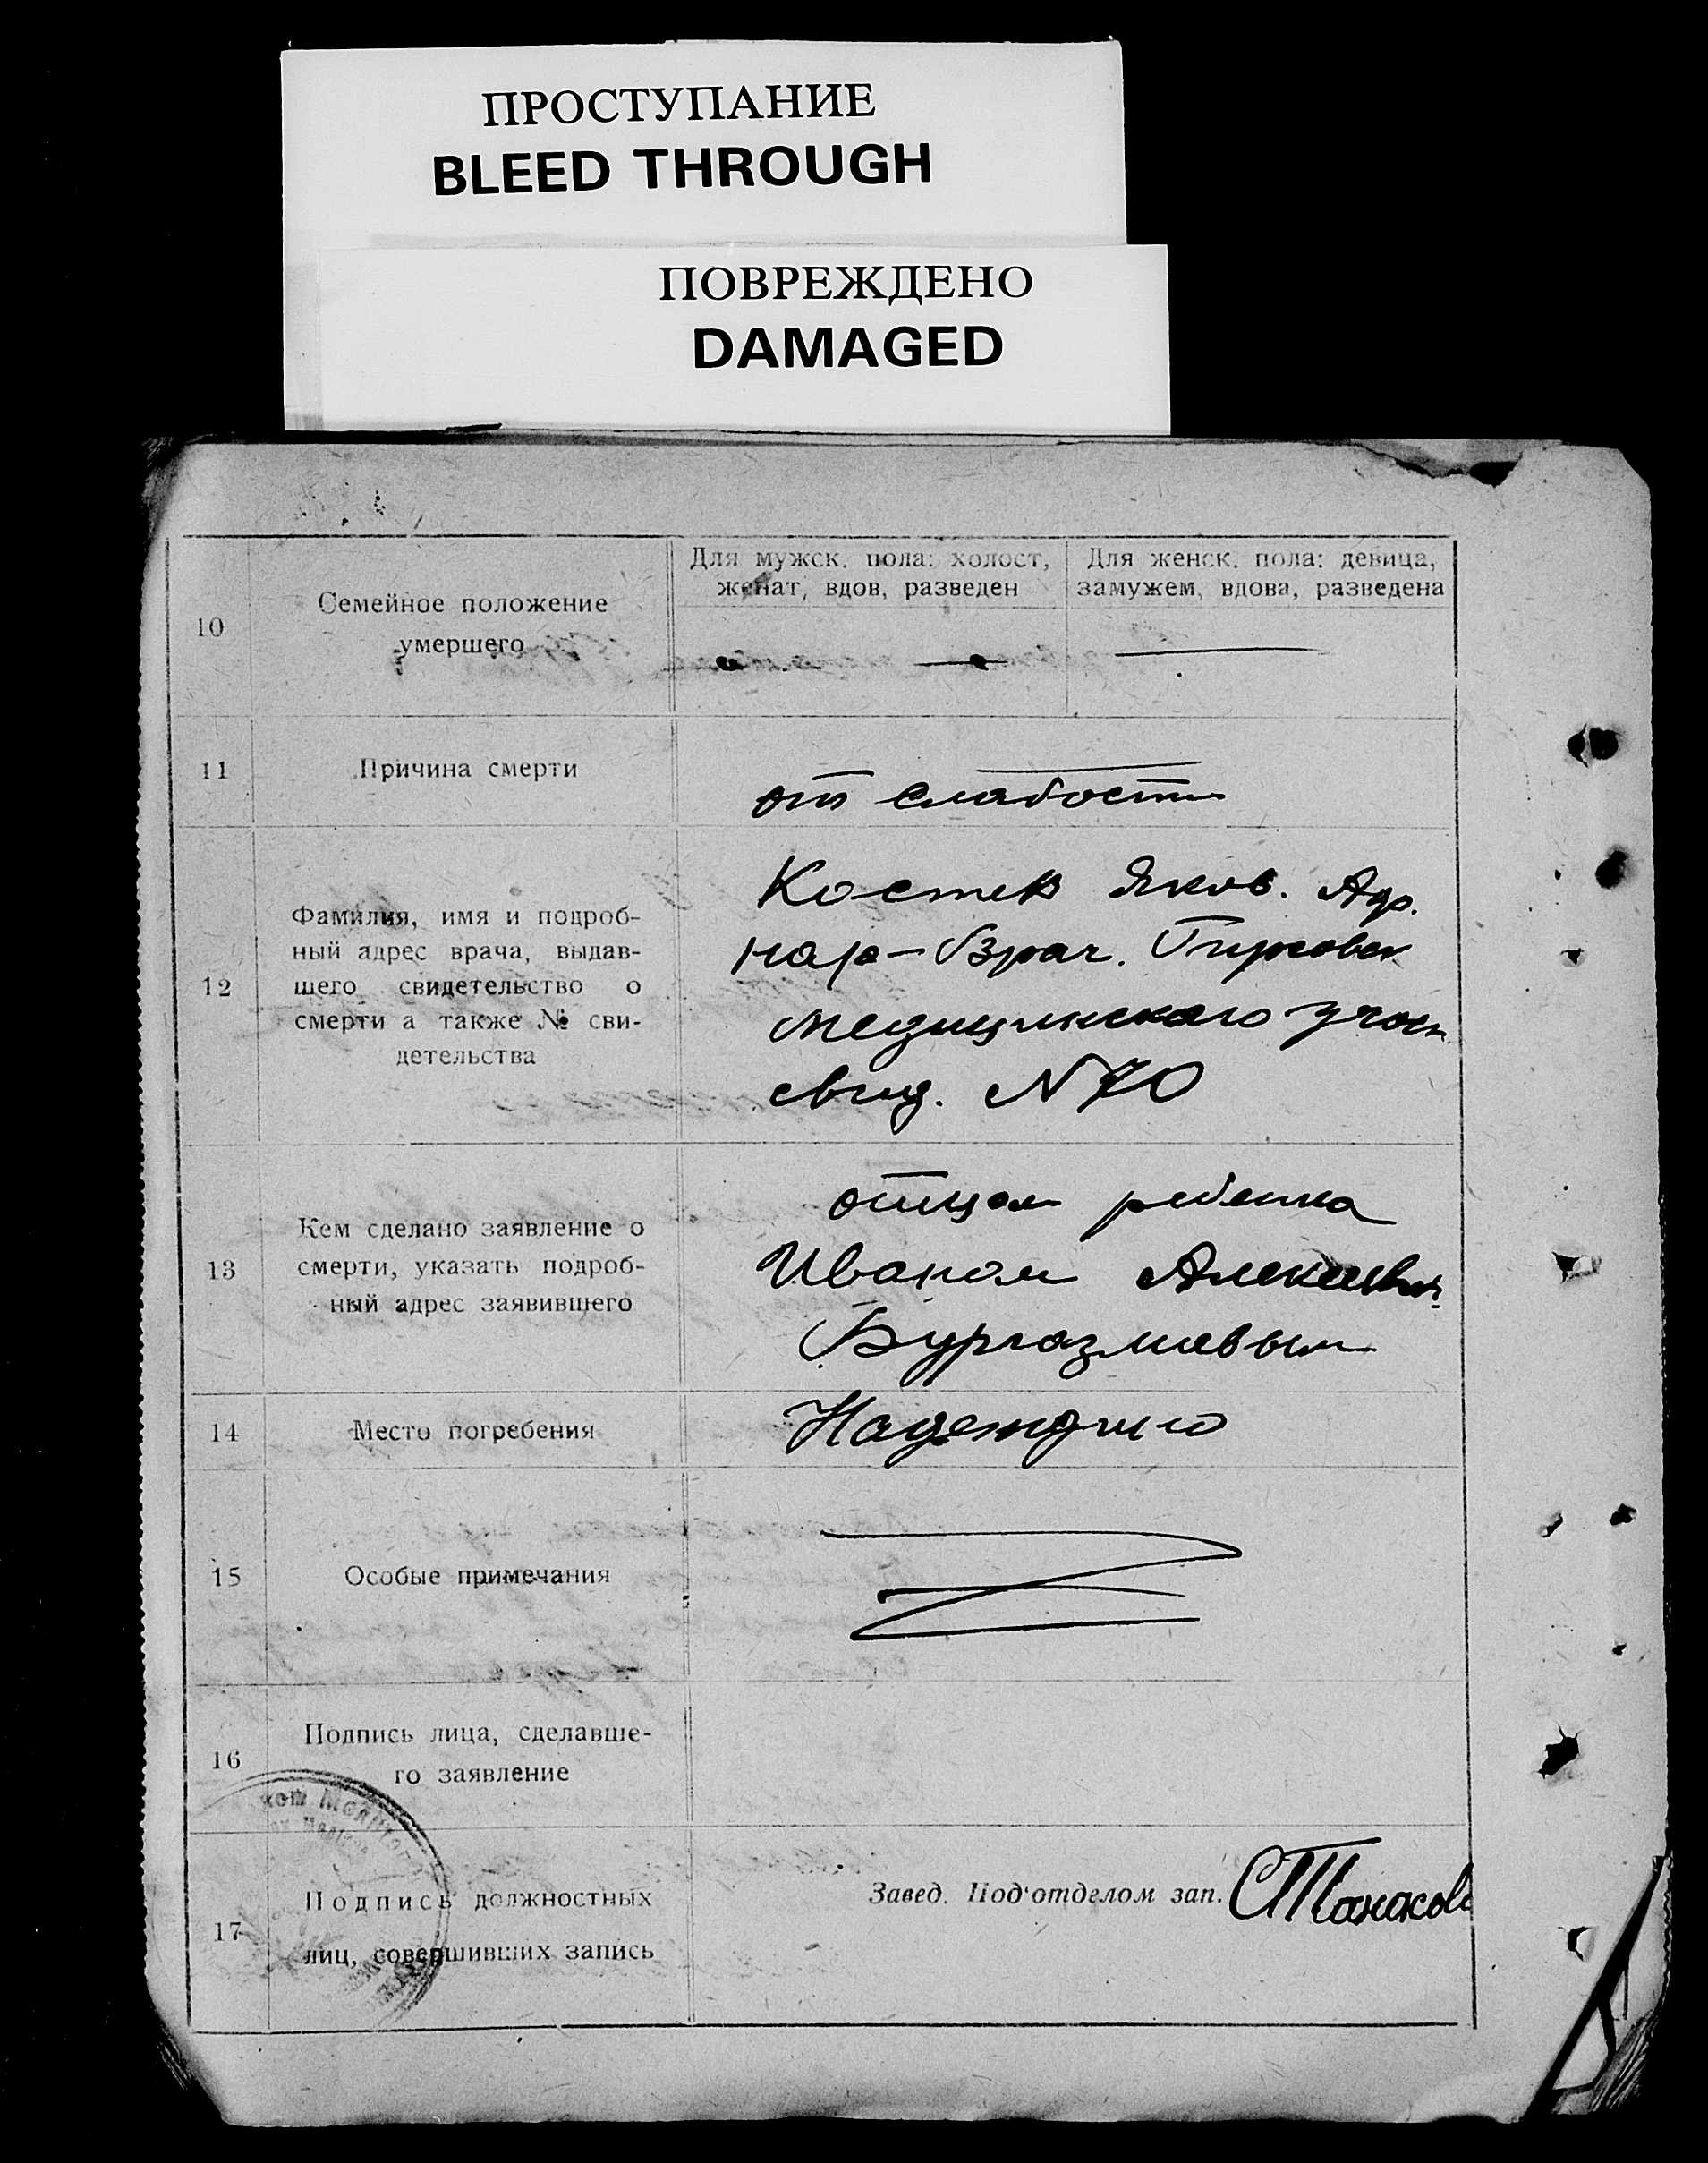 ПРОСТУПАНИЕ
BLEED THROUGH
ПОВРЕЖДЕНО
DAMAGED
10
Семейное положение
умершего
Для мужск. пола: холост,
женат, вдов, разведен
Для женск. пола: девица,
замужем, вдова, разведена
11
Причина смерти
от слабости
12
Фамилия, имя и подроб-
ный адрес врача, выдав-
шего свидетельство о
смерти а также № сви-
детельства
Костек Яков. Адр.
нар-Врач.
медицинскаго участ
свид. N 70
13
Кем сделано заявление о
смерти, указать подроб-
ный адрес заявившего
отцом ребенка
Иваном Алексеевич
Бургазлиевым
14
Место погребения
Надеждино
15
Особые примечания
16
Подпись лица, сделавше-
го заявление
17
Подпись должностных
лиц, совершивших запись
Завед. Под'отделом зап.